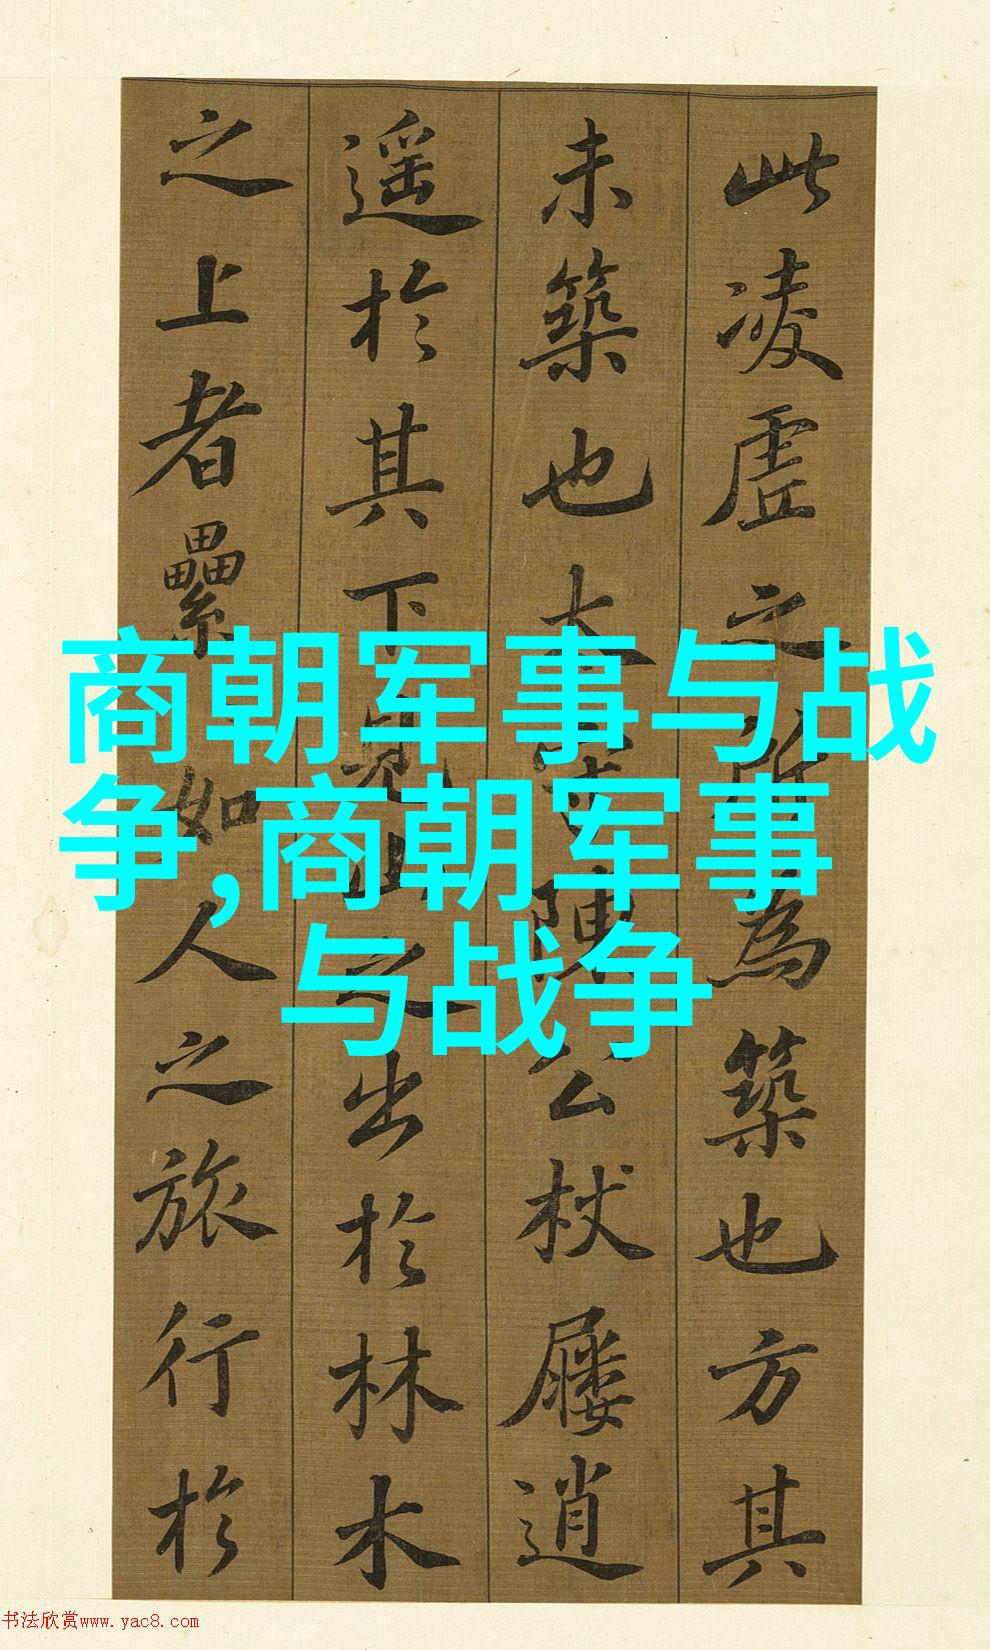 此凌虛之所為築也方其
未築也太守陳公杖屨逍
遥於其下見山之出於林木
之上者纍如人之旅行於
商朝军事与战
争,商朝军事
与战争
书法欣赏www.yac8.com